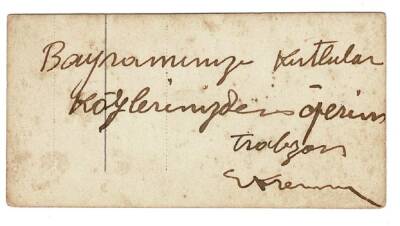 Bayramınızı Kutlular
Gözlerinizden öperim
Trabzon
Ekrem